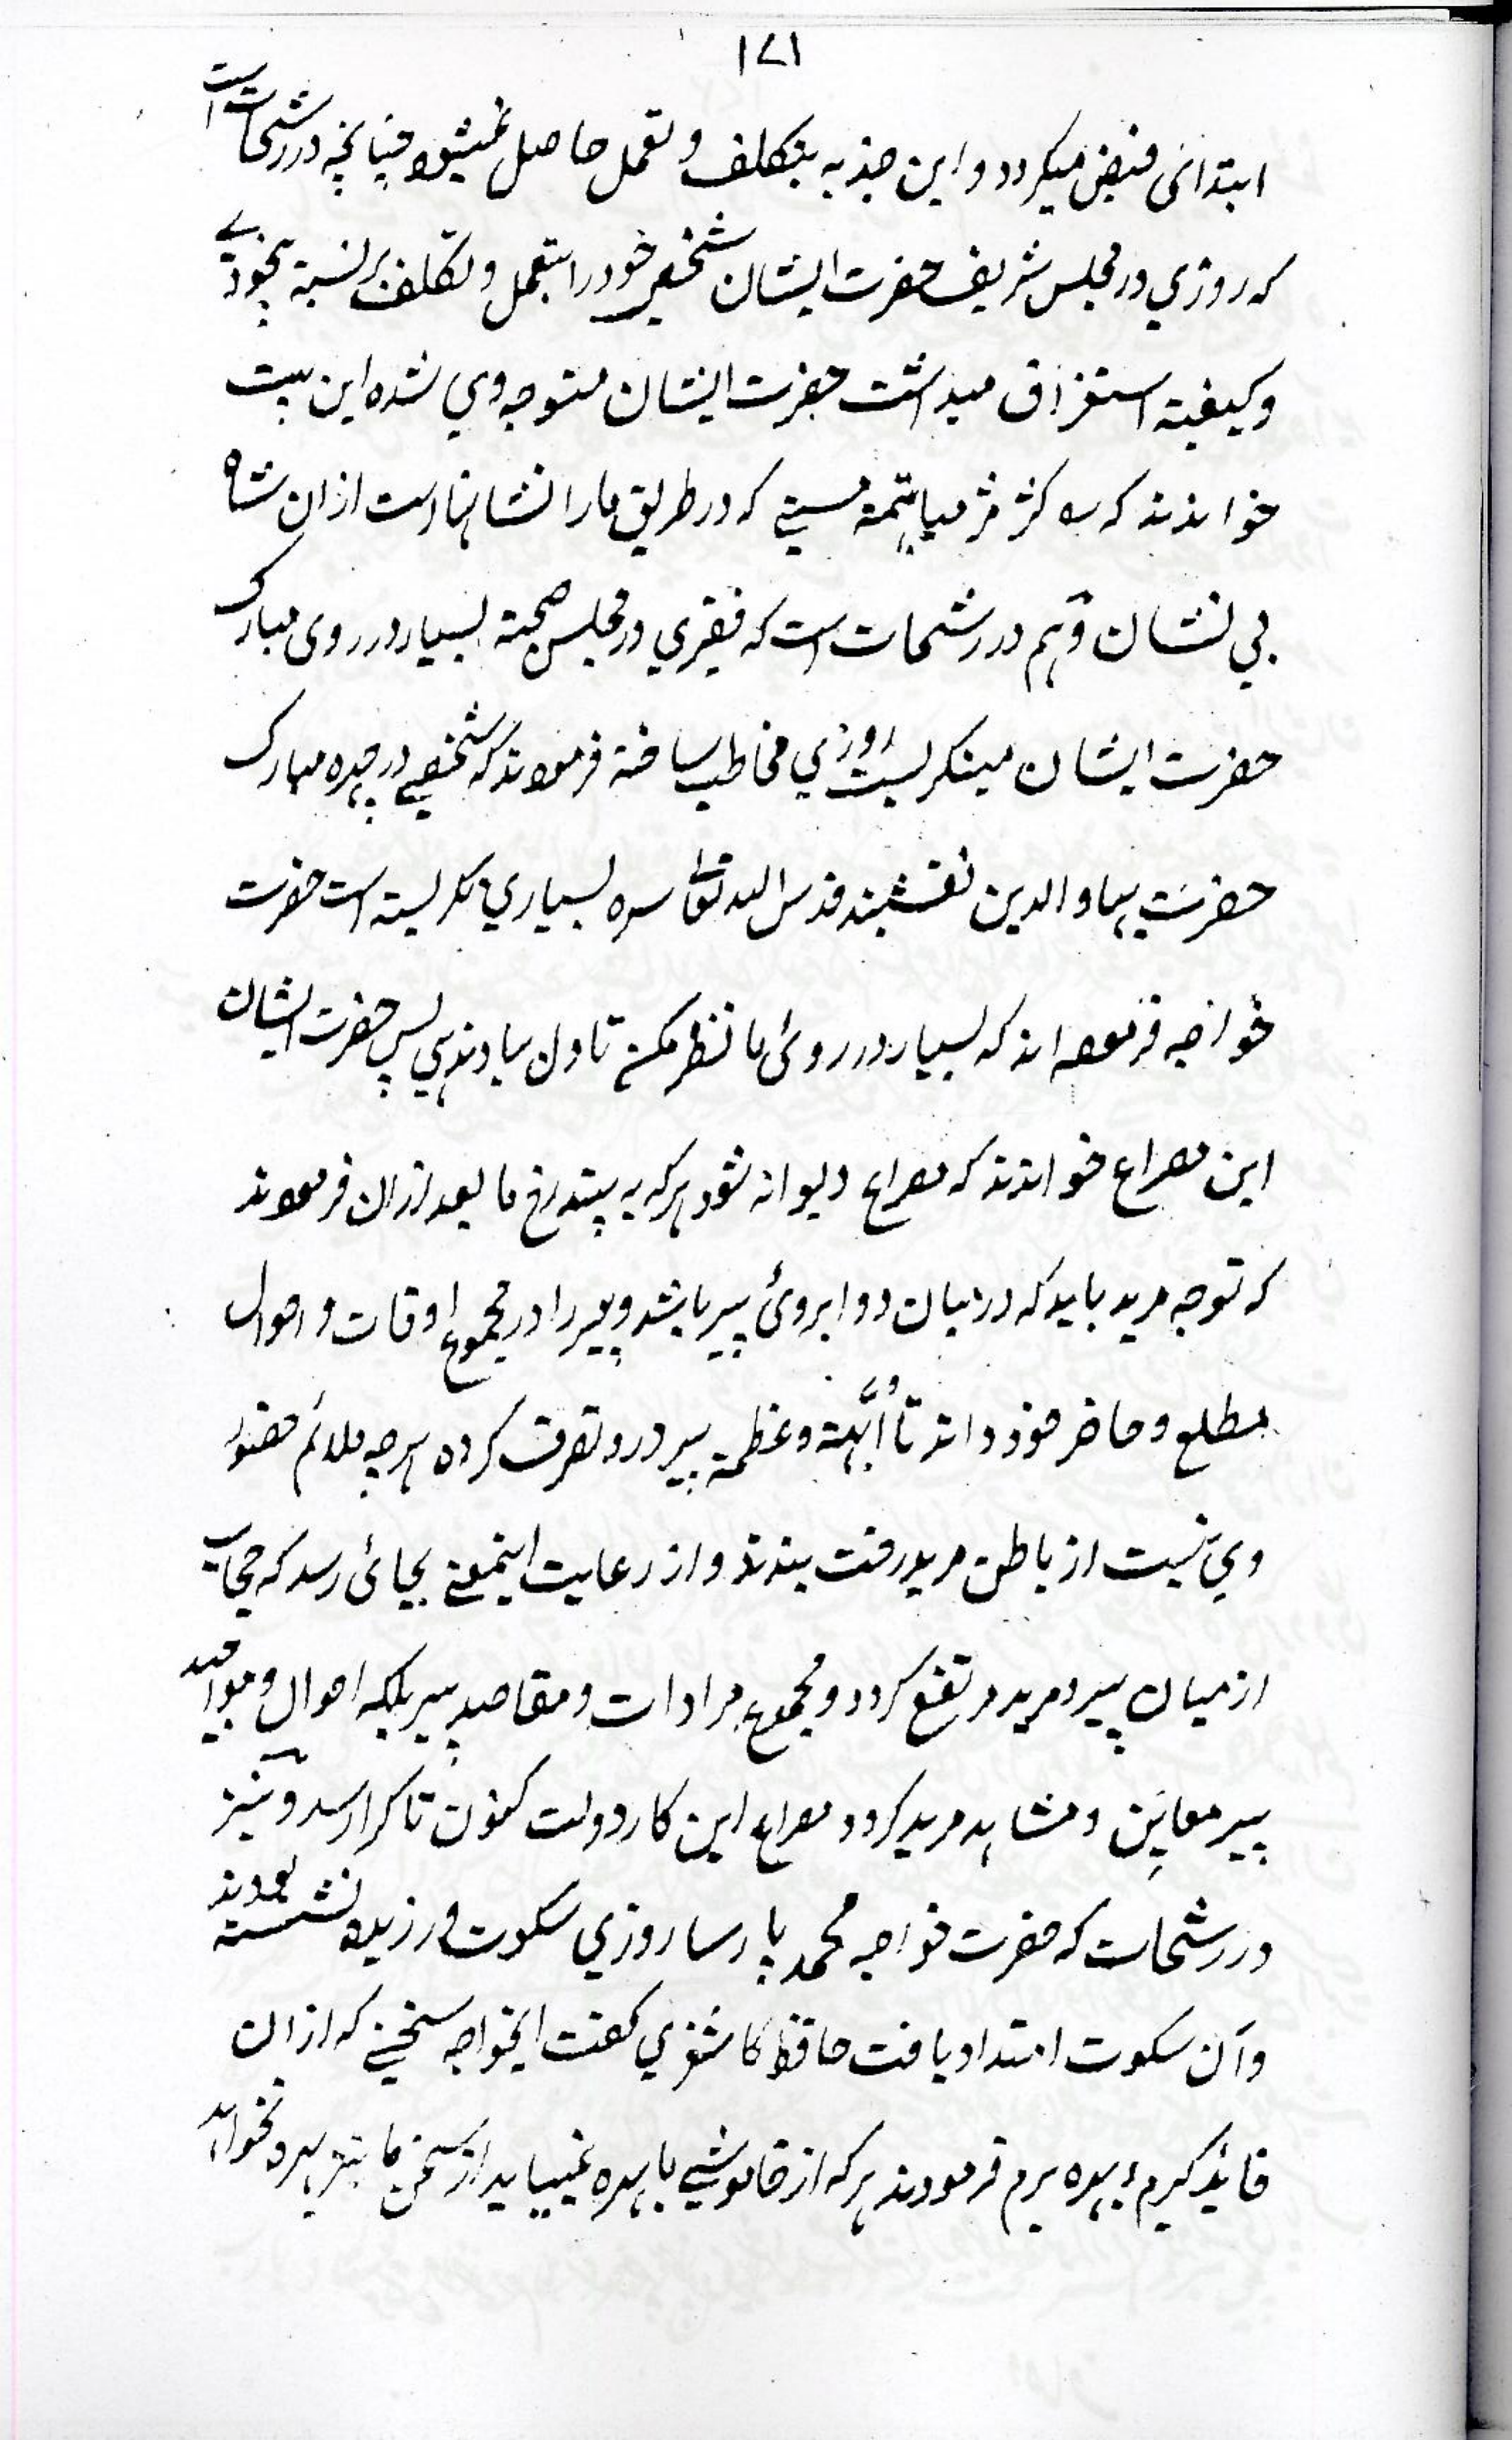 ۱۷۱
ابتدائی فیض میکردد و این جذبه بتکلف و تعمل حاصل نمیشود چنانچه در رشحات است
که روزي در مجلس شریف حضرت ایشان شخصی خود را بتعمل و تکلف بر نسبة بیخودے
و کیفیة استغراق میداشت حضرت ایشان متوجه وي شده این بیت
خواندند که کژ مژ میا بتهمة مستے که در طریق ما را نشانهاست ازان شاه
بي نشان وهم در رشحات است که فقیري در مجلس صحبة بسیار در روی مبارک
حضرت ایشان مینکریست روزي مخاطب ساخته فرمودند که شخصے در چهره مبارک
حضرت بهاو الدین نقشبند قدس الله تعالٰی سره بسیاري نکریسته است حضرت
خواجه فرموده اند که بسیار در روئ ما نظر مکن تا دل بباد ندهي پس حضرت ایشان
این مصراع خواندند که مصراع دیوانه شود هرکه به بیند رخ ما بعد ازان فرمودند
که توجه مرید باید که درمیان دو ابروئ پیر باشد و پیر را در مجموع اوقات و احوال
مطلع و حاضر خود داند تا اُبَّهة و عظمة پیر درو تصرف کرده هرچه ملائم حضور
وي نیست از باطن مرید رخت بندند و از رعایت اینمعنے بجائ رسد که حجاب
ازمیان پیر و مرید مرتفع کردد و مجموع مرادات و مقاصد پیر بلکه احوال و مواجید
پیر معاین و مشاهد مرید کردد مصراع این کار دولت کنون تا کرا رسد و نیز
در رشحات که حضرت خواجه محمد پارسا روزي سکوت ورزیده نشسته بودند
و آن سکوت امتداد یافت حافظ کاشغري کفت ایخواجه سخنے که ازان
فائده کیرم و بهره برم فرمودند هرکه از خاموشے ما بهره نمییابد از سخن ما نیز بهره نخواهد